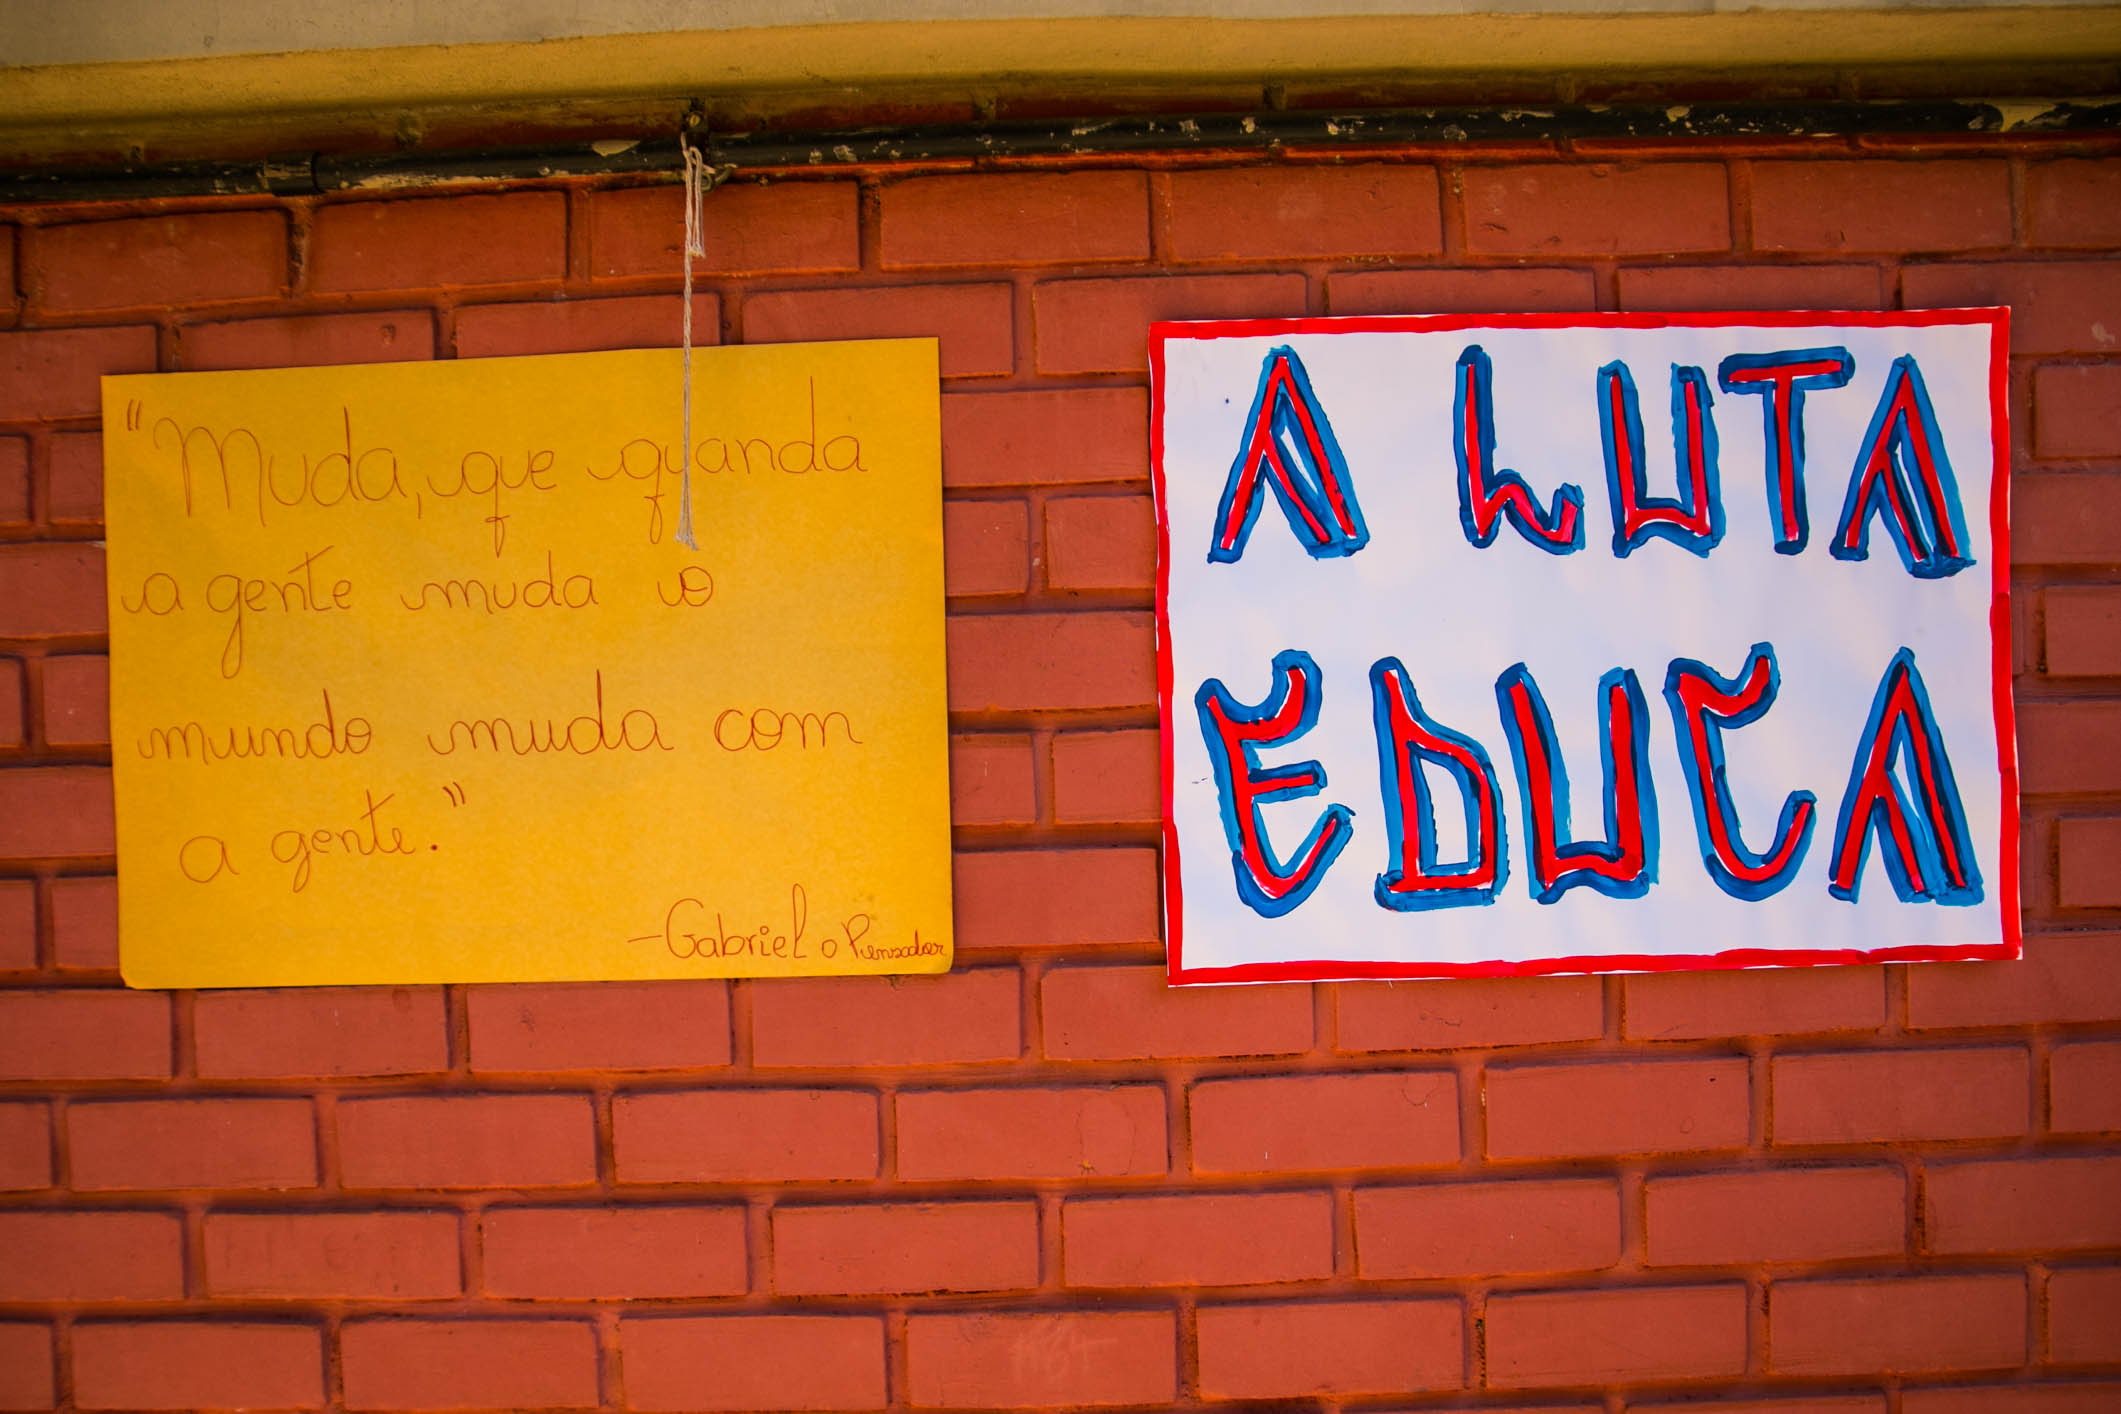 "Muda, que quanda
a gente muda o
mundo muda com
a gente."
-Gabriel o Pensador
A LUTA
EDUCA